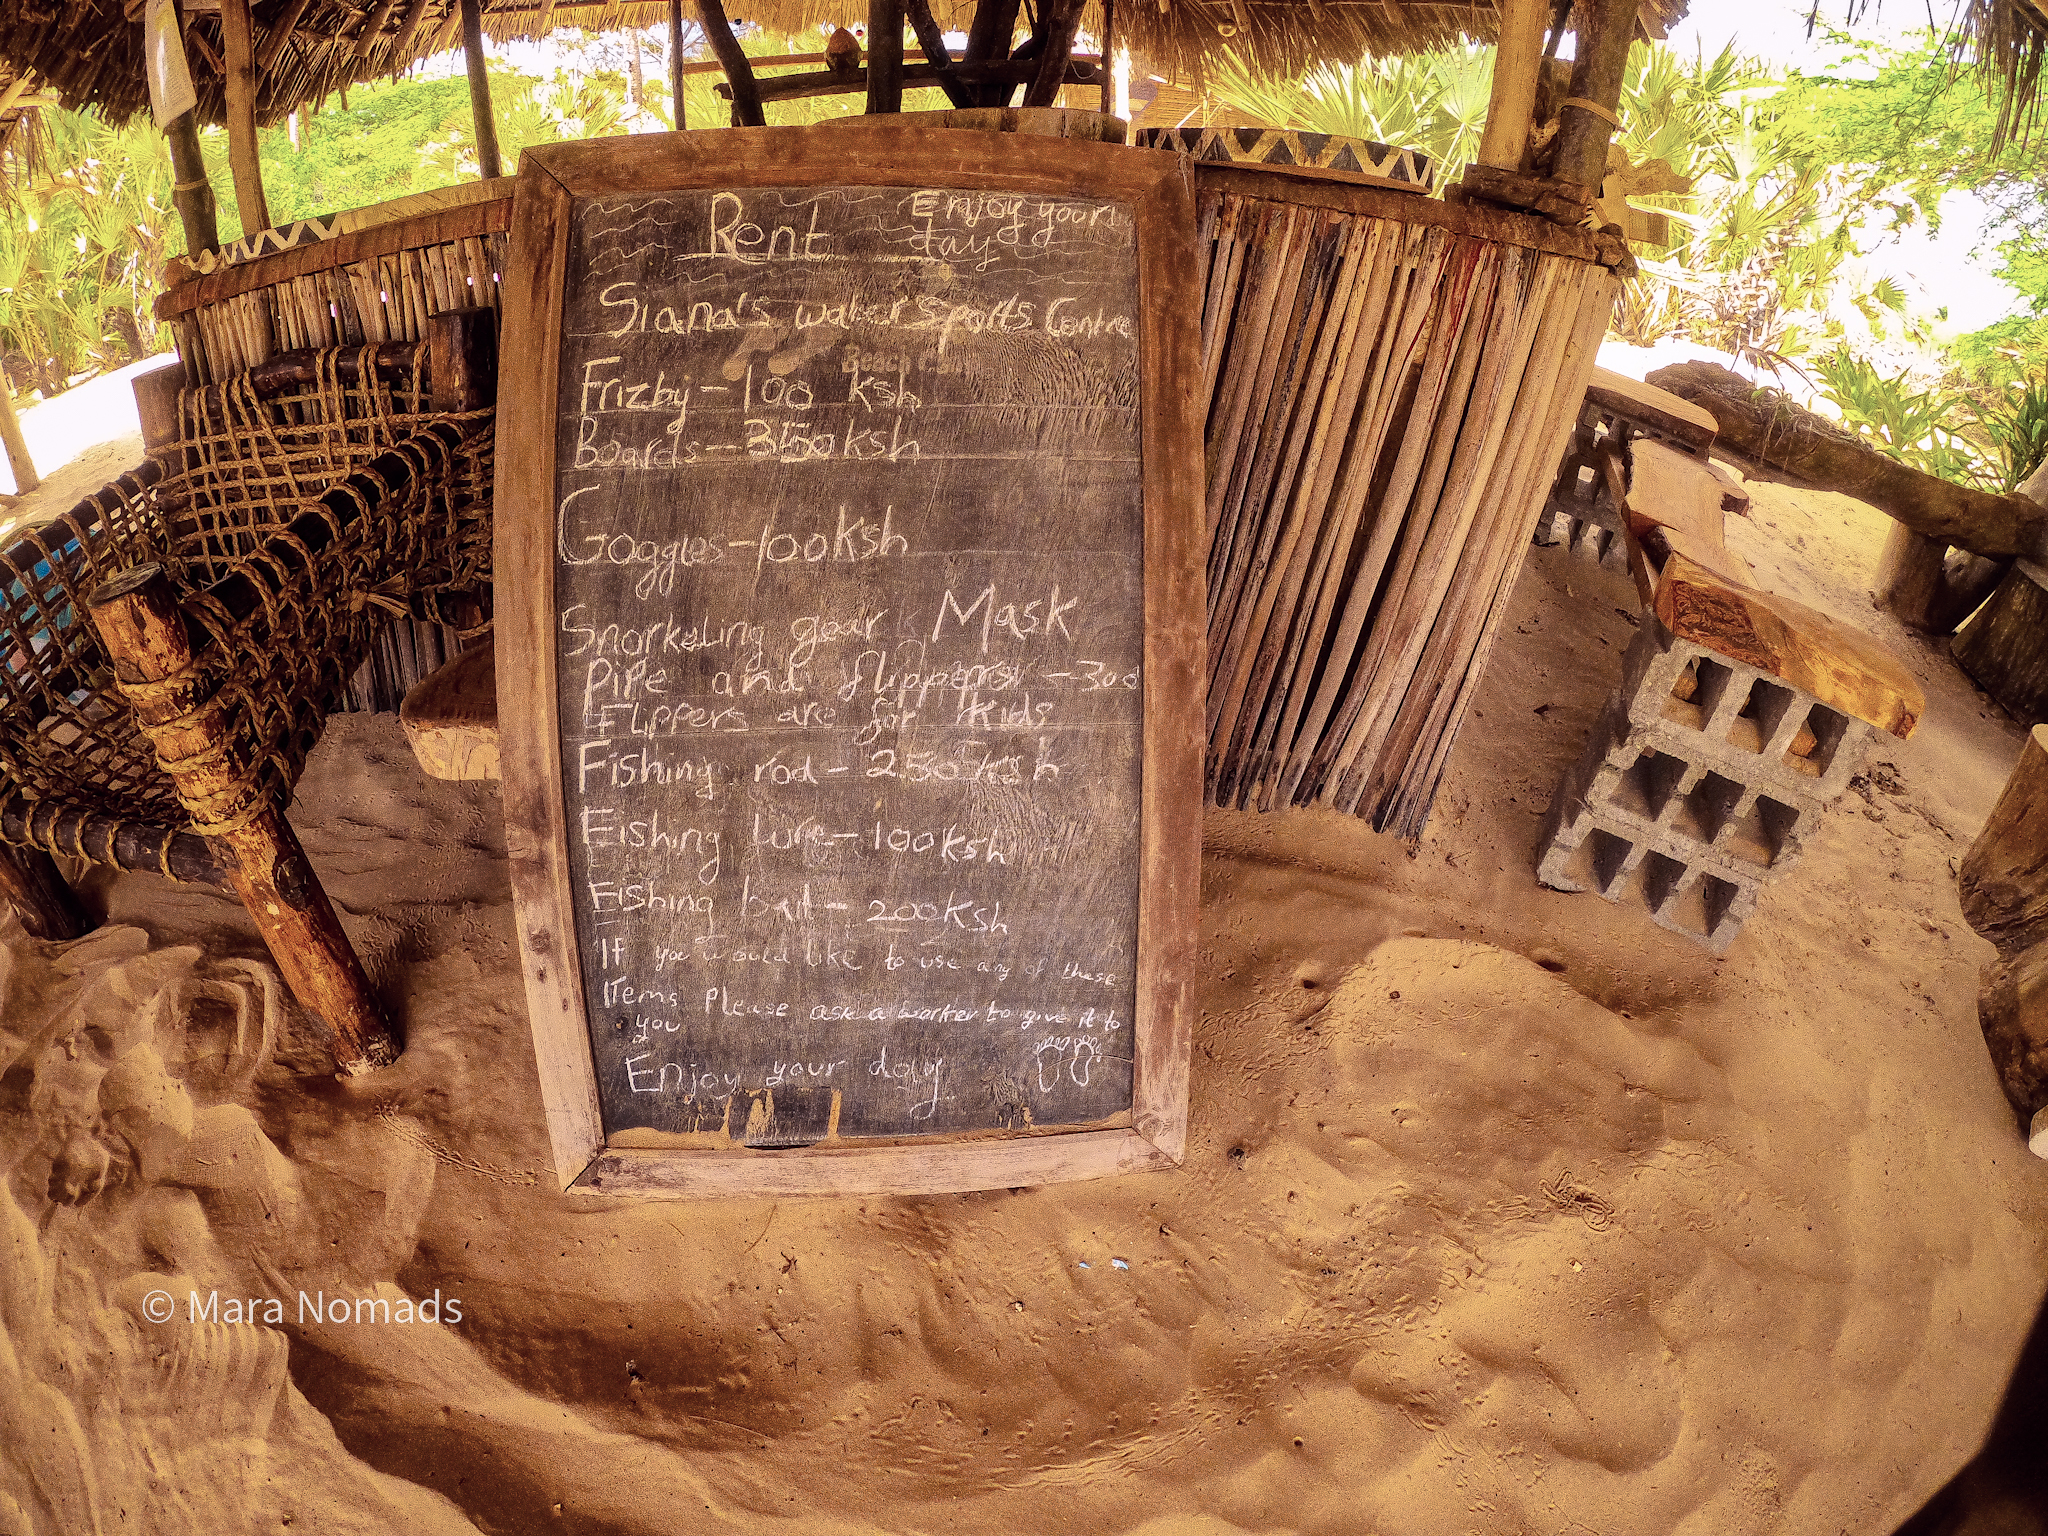 Rent
Enjoy your
day
Siana's water sports Centre
Beach
Frizby - 100 Ksh
Boards - 350 Ksh
Goggles - 100 Ksh
Snorkeling gear Mask
Pipe and flippers - 300
Flippers are for kids
Fishing rod - 250 Ksh
Fishing lure - 100 Ksh
Fishing bait - 200 Ksh
If you would like to use any of these
Items Please ask a worker to give it to
you
Enjoy your day
© Mara Nomads